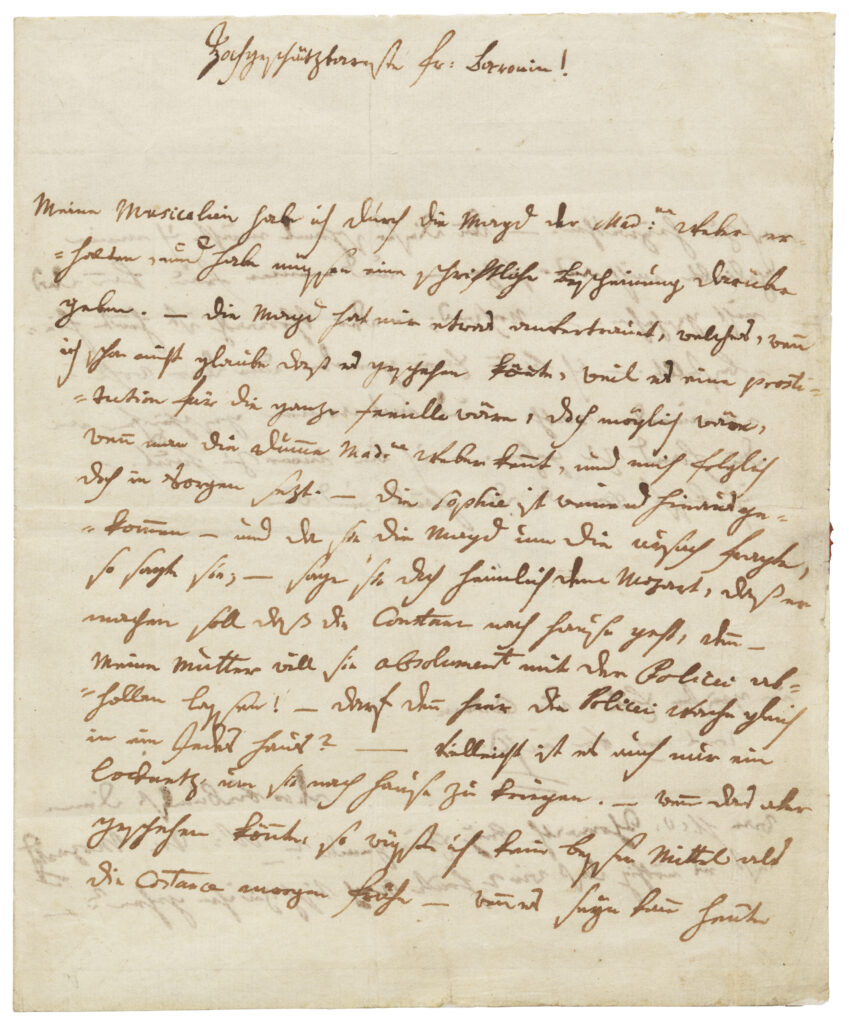 Hochgeschätzbareste fr: Baronin!
Meine Musicalien habe ich durch die Magd der Mad:me Weber er-
=halten, und habe müssen eine schriftliche bescheinung darüber
geben. — die Magd hat mir etwas anvertrauet, welches, wenn
ich schon nicht glaube daß es geschehen könnte, weil es eine prosti-
=tution für die ganze familie wäre, doch möglich wäre,
wenn man die dumme Mad:me Weber kennt, und mich folglich
doch in Sorgen sezt. — die Sophie ist weinend hinausge-
=kommen — und da sie die Magd um die ursach fragte,
so sagte sie, — sage sie doch heimlich dem Mozart, daß er
machen soll daß die Constanz nach hause geht, denn —
Meine Mutter will sie absolument mit der Policei ab-
=hollen lassen! — darf denn hier die Policei wache gleich
in ein Jedes haus? — Vielleicht ist es auch nur ein
locknetz um sie nach hause zu kriegen. — wenn das aber
geschehen könnte, so wüsste ich kein bessers Mittel als
die Costance morgen frühe — wenn es seyn kann heute